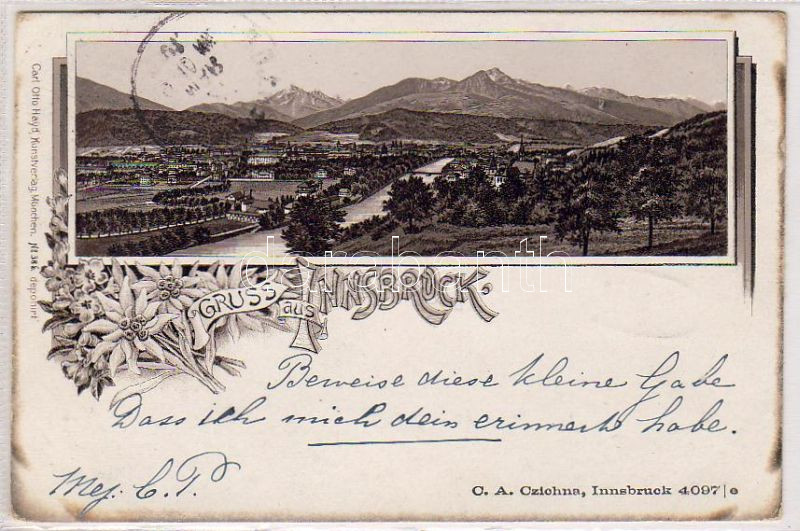 Carl Otto Hayd, Kunstverlag, München. № 38k deponirt
GRUSS aus INNSBRUCK.
darabanth
Beweise diese kleine Gabe
Dass ich mich dein erinnert habe.
C. A. Czichna, Innsbruck 4097